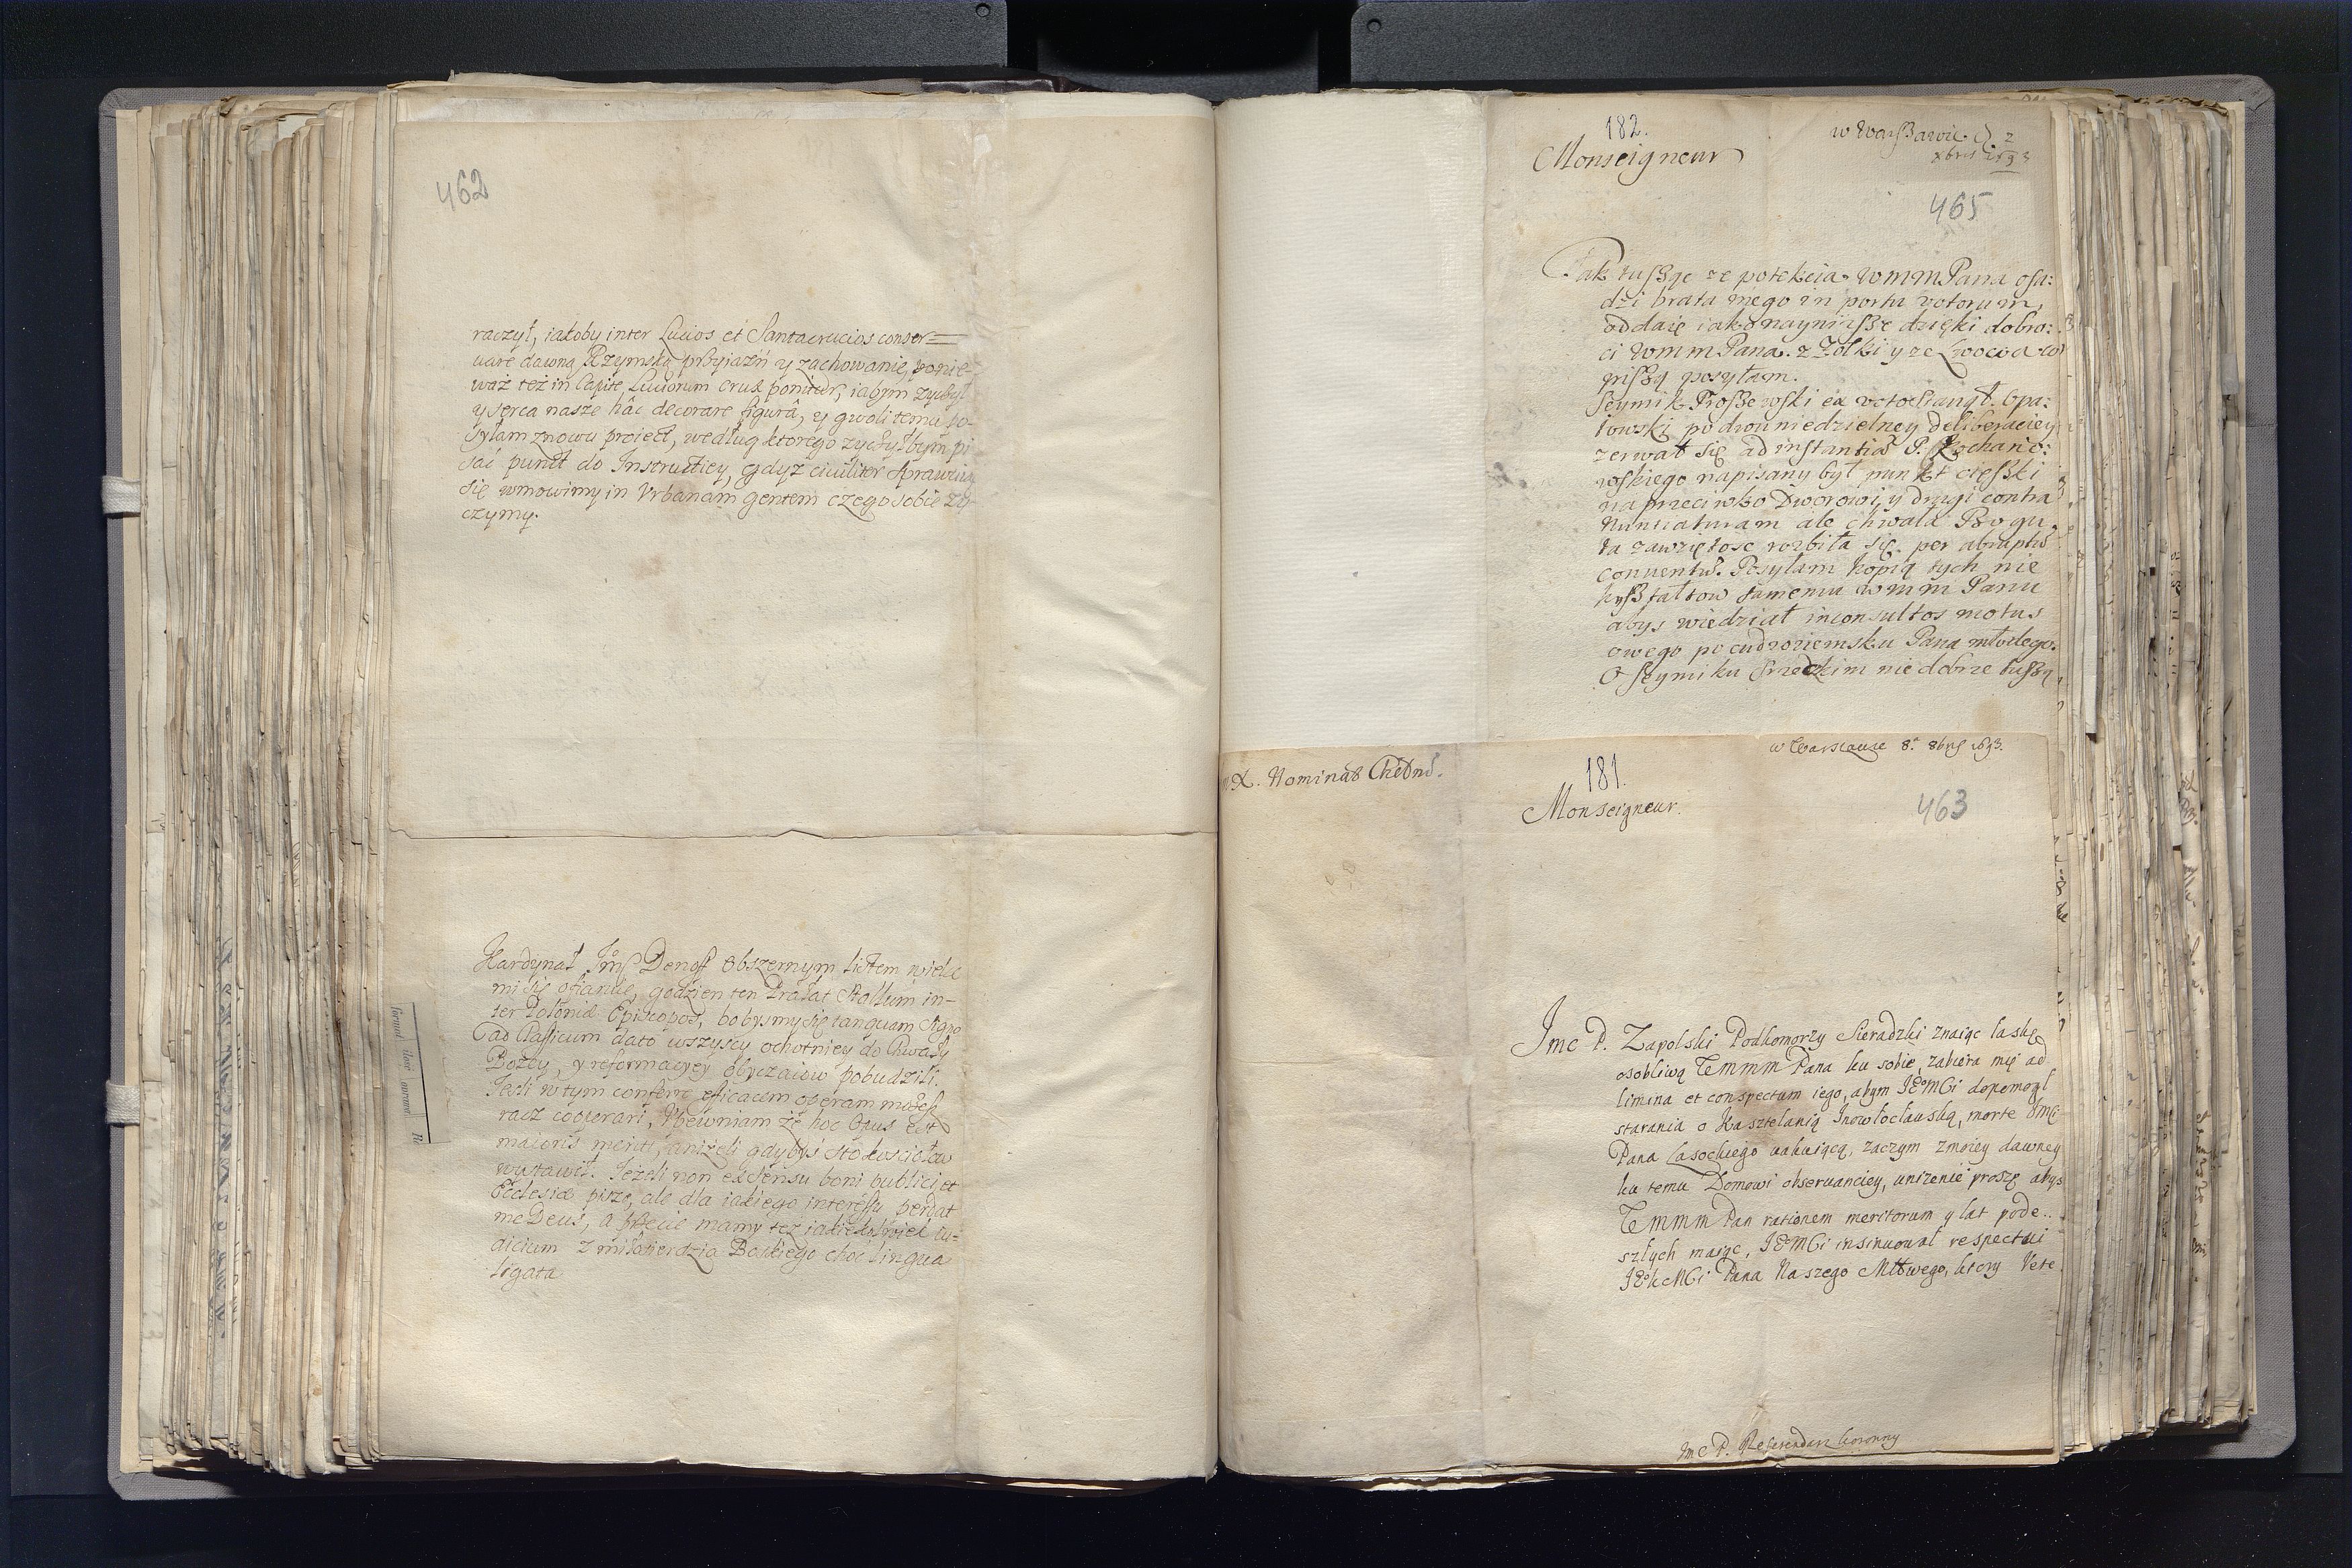 462
raczył, iakoby inter Lucios et Santacrucios conser=
uare dawną Rzymską przyiaźń y zachowanie, ponie-
waż też in Capite Luciorum crux ponitur, iabym życzył
y serca nasze hâc decorare figurâ, y gwoli temu po-
syłam znowu proiect, według ktorego zyczyłbym pi
sać punct do Instructiey, gdyz ciuiliter sprawując
się wmowimy in Vrbanam gentem czego sobie zy
czymy.
Kardynał Denoff obszernym listem wielce
mi się ofiaruie, godzien ten Prałat Stallum in-
ter Poloniæ Episcopos, bobysmy się tanquam signo
ad Classicum dato wszyscy ochotniey do Chwały
Bozey, y reformacyey obyczaiow pobudzili.
Jesli w tym conferre efficacem operam możesz
racz cooperari, Vpewniam że hoc Opus erit
maioris meriti, aniżeli gdybyś sto kosciołow
wystawił. Jeżeli non ex sensu boni publici et
Ecclesiæ piszę, ale dla iakiego interessu perdat
me Deus, a przecie mamy też iakieżkolwiek iu-
dicium z miłosierdzia Boskiego choć lingua
ligata
182.
w Warszawie
Monseigneur
465
Tak tuszę ze potekcia wmm Pana osa:
dzi brata mego in portu votorum,
oddaię iako naynizsze dzięki dobro:
ci wmm Pana. z Zolki y ze Lwowa
piszą posyłam.
Seymik Proszewski ex voto stanął. Opa:
towski po dwuniedzielney deliberaciey
zerwał się ad instantias P. Kochano:
wskiego napisany był punkt cięszki
na przeciwko Dworowi, y drugi contra
Nuntiaturam ale chwała Bogu
ta zawziętosc rozbiła się per abruptũ
conuentũ. Posyłam kopią tych nie
kształtow samemu wmm Panu
abys wiedział inconsultos motus
owego po cudzoziemsku Pana młodego.
O seymiku srzedzkim nie dobrze tuszą
X. Nominat Chełmſ.
w Warszawie 8. 8bris 1693.
181.
Monseigneur
463
Jmc P. Zapolski Podkomorzy Sieradzki znaiąc łaskę
osobliwą Wmmm Pana ku sobie, zabiera mię ad
limina et conspectum iego, abym JeoMći dopomogł
starania o Kasztelanią Inowłocławską, morte JMći
Pana Lasockiego vakuiącą, zaczym zmoiey dawney
ku temu Domowi obseruanciey, unizenie proszę abys
Wmmm Pan rationem meritorum y lat pode..
szłych maiąc, JeoMći insinuował respectui
JeoKMći Pana Naszego Młłwego, ktory Vete
Jmc P. Referendarz koronny